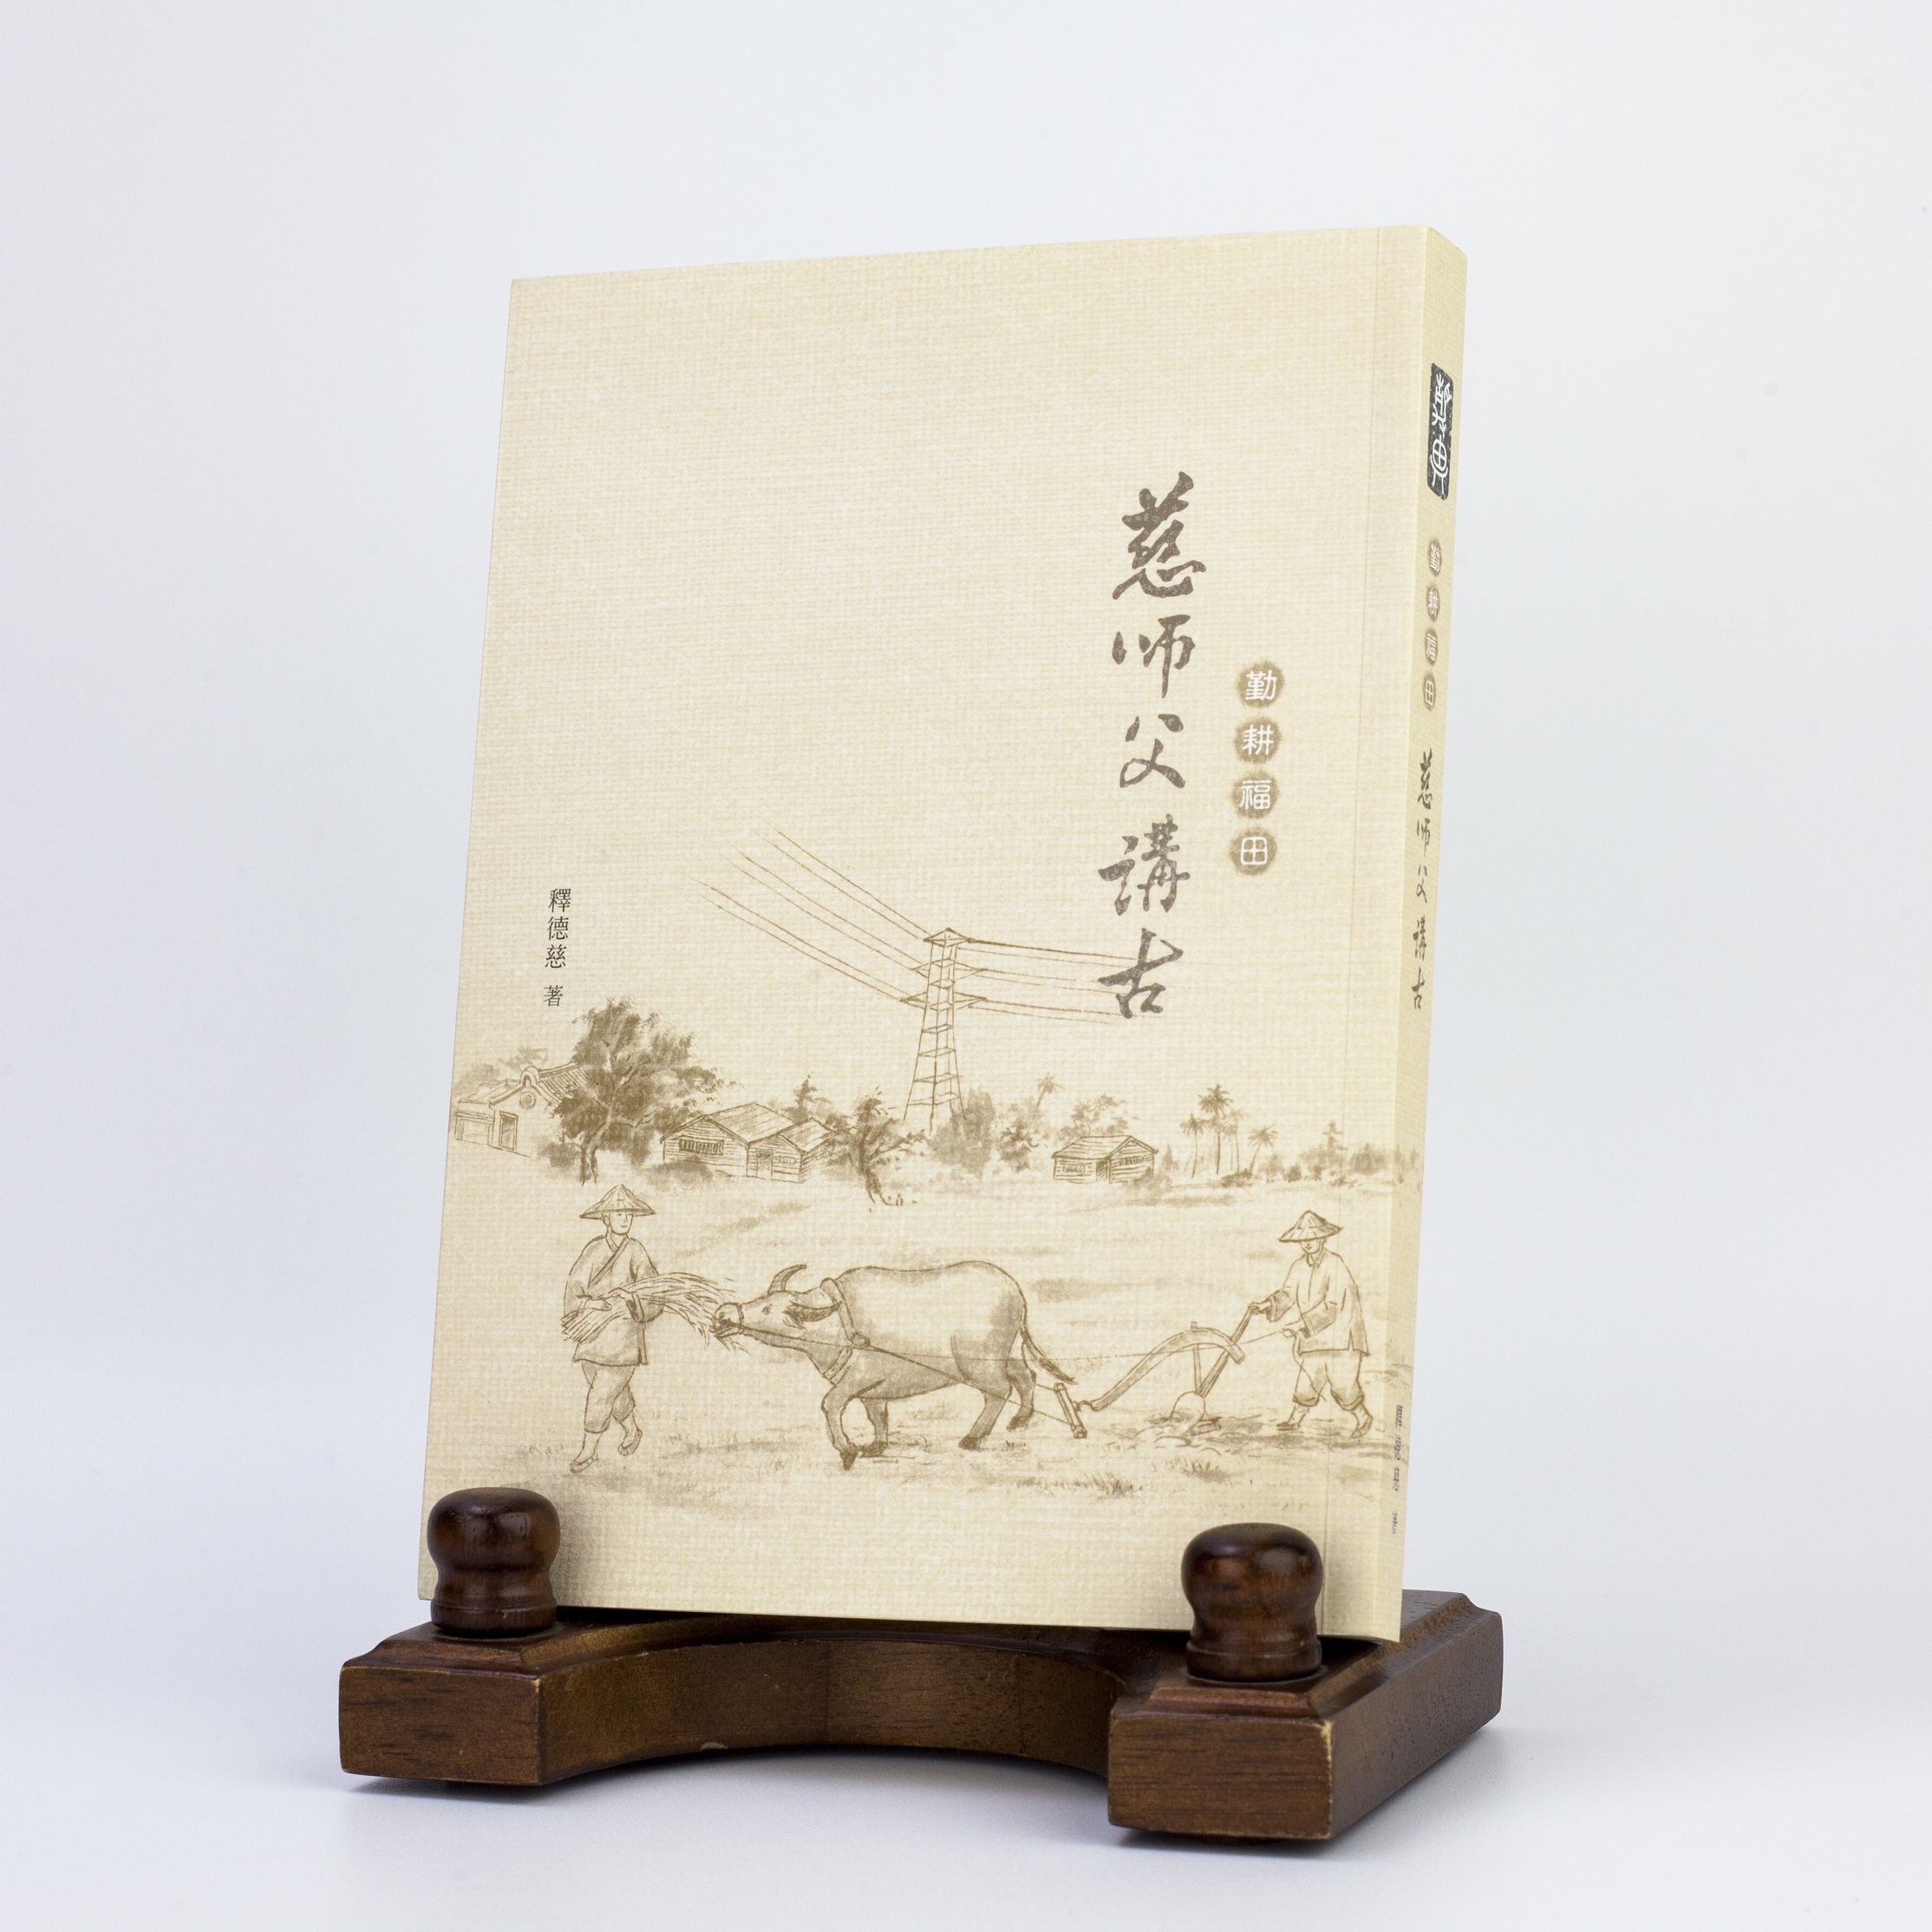 慈师父講古
勤耕福田
釋德慈 著
勤耕福田
慈师父講古